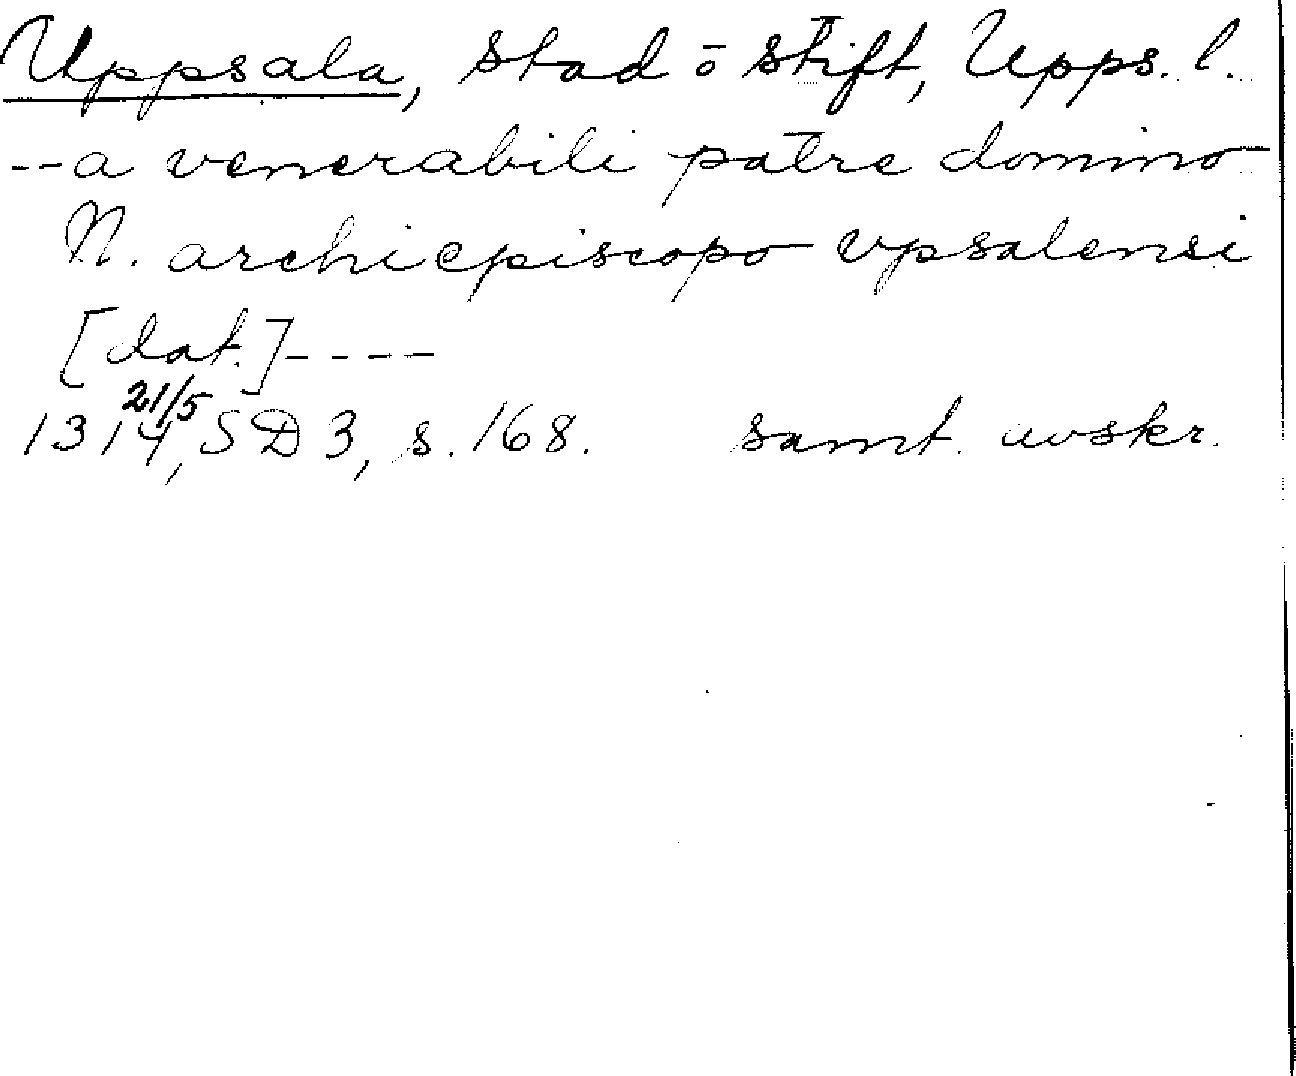 Uppsala, stad o stift, Upps. l.
--a venerabili patre domino
N. archiepiscopo vpsalensi
[dat.]----
21/5
1314, SD 3, s. 168. samt. avskr.